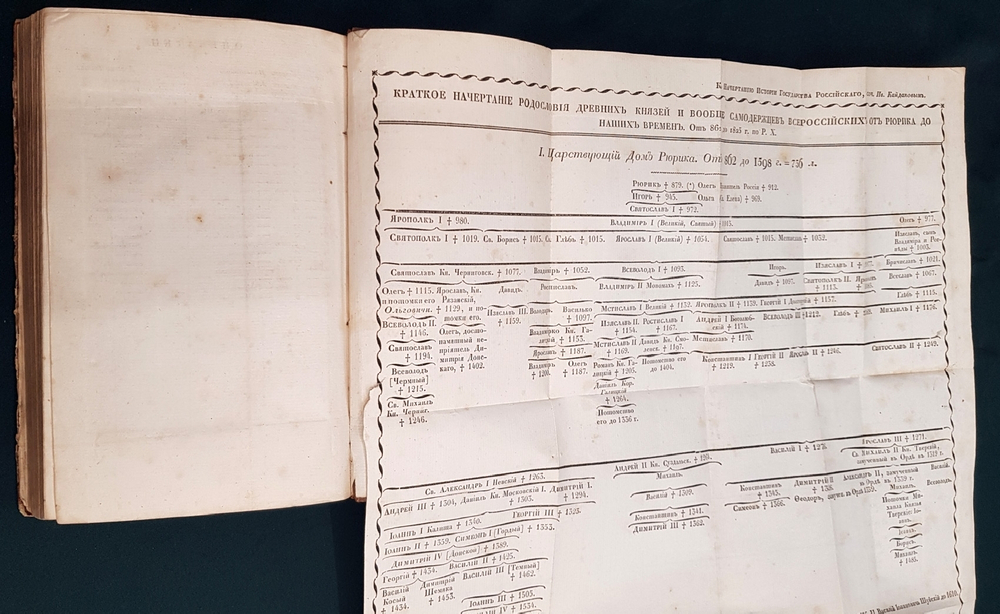 К Начертанию Исторіи Государства Россійскаго, соч. Ив. Кайдановымъ.
КРАТКОЕ НАЧЕРТАНІЕ РОДОСЛОВІЯ ДРЕВНИХЪ КНЯЗЕЙ И ВООБЩЕ САМОДЕРЖЦЕВЪ ВСЕРОССІЙСКИХЪ ОТЪ РЮРИКА ДО
НАШИХЪ ВРЕМЕНЪ. Отъ 862 до 1825 г. по Р. Х.
I. Царствующій Домъ Рюрика. Отъ 862 до 1598 г. = 736 л.
Рюрикъ † 879. (*) Олегъ Россіи † 912.
Игорь † 945. Ольга Елена) † 969.
Святославъ I † 972.
Ярополкъ I † 980. Владиміръ I (Великій, Святый) 1015. Олегъ † 977.
Святополкъ I † 1019. Св. Борисъ † 1015. Св. Глѣбъ † 1015. Ярославъ I (Великій) † 1054. Святославъ † 1015. Мстиславъ † 1032.
Изяславъ, сынъ
Владиміра и Рог-
нѣды † 1003.
Святославъ Кн. Черниговск. † 1077. Владиміръ † 1052. Всеволодъ I † 1093. Игорь. Изяславъ I Брячиславъ † 1021.
Олегъ † 1115.
и потомки его
Ольговичи.
Ярославъ, Кн.
Рязанскій,
† 1129, и по-
томки его.
Давидъ. Ростиславъ. Владиміръ II Мономахъ † 1125. Давидъ † 1097. Святополкъ II.
† 1113.
Всеславъ † 1067.
Изяславъ III.
† 1159.
Володарь. Василько
† 1097.
Мстиславъ I Великій † 1132. Ярополкъ II † 1139. Георгій I Долгорукій † 1157. Глѣбъ † 1115.
Всеволодъ II.
† 1146.
Олегъ, досто-
памятный не-
пріятель Ди-
митрія Донс-
каго, † 1402.
Владимірко Кн. Га-
лицкій † 1153.
Изяславъ II.
† 1154.
Ростиславъ I
† 1167.
Андрей I Боголюб-
скій † 1174.
Всеволодъ III † 1212. Глѣбъ Михаилъ I † 1176.
Святославъ
† 1194.
Ярославъ † 1187. Мстиславъ II
† 1169.
Давидъ Кн. Смо-
ленск. † 1197.
Мстиславъ † 1170.
Всеволодъ
[Чермный]
† 1215.
Владиміръ
Олегъ
† 1187.
Романъ Кн. Га-
лицкій † 1205.
Потомство его
до 1404.
Константинъ I
† 1219.
Георгій II
† 1238.
Ярославъ II † 1246. Святославъ II † 1249.
Св. Михаилъ
Кн. Черниг.
† 1246.
Даніилъ Кор.
Галицкій
† 1264.
Потомство
его до 1336 г.
Св. Александръ I Невскій † 1263. Андрей II Кн. Суздальск. Василій I † 1276. Ярославъ III † 1271.
Андрей III † 1304, Даніилъ Кн. Московскій I.
† 1303.
Димитрій I.
† 1294.
Михаилъ. Св. Михаилъ II Кн. Тверскій,
замученный въ Ордѣ въ 1319 г.
Георгій III † 1325. Василій † 1309. Константинъ
† 1345.
Димитрій II Александръ II, замученный
въ Ордѣ въ 1339 г.
Василій.
Іоаннъ I Калита † 1340. Константинъ † 1341. Семеонъ † 1366. Михаилъ. Всеволодъ.
Іоаннъ II † 1359. Симеонъ I [Гордый] † 1353. Димитрій III † 1362. Потомки Ми-
хаила Князья
Тверскіе: Іо-
аннъ.
Димитрій IV [Донской] † 1389.
Георгій † 1434. Василій II † 1425.
Василій
Косый
† 1434.
Димитрій
Шемяка
† 1453.
Василій III [Темный]
† 1462.
Борисъ.
Михаилъ
† 1485.
Іоаннъ III † 1505.
IV † 1534.